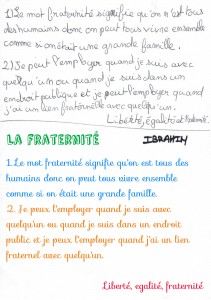 1)Le mot fraternité signifie qu'on est tous
des humains donc on peut tous vivre ensemble
comme si on était une grande famille.
2) Je peut l'employer quand je suis avec
quelqu'un ou quand je suis dans un
endroit publique et je peut l'employer quand
j'ai un lien fraternelle avec quelqu'un.
Liberté, égalité et fraternité.
LA FRATERNITÉ
IBRAHIM
1. Le mot fraternité signifie qu'on est tous des
humains donc on peut tous vivre ensemble
comme si on était une grande famille.
2. Je peux l'employer quand je suis avec
quelqu'un ou quand je suis dans un endroit
public et je peux l'employer quand j'ai un lien
fraternel avec quelqu'un.
Liberté, egalité, fraternité